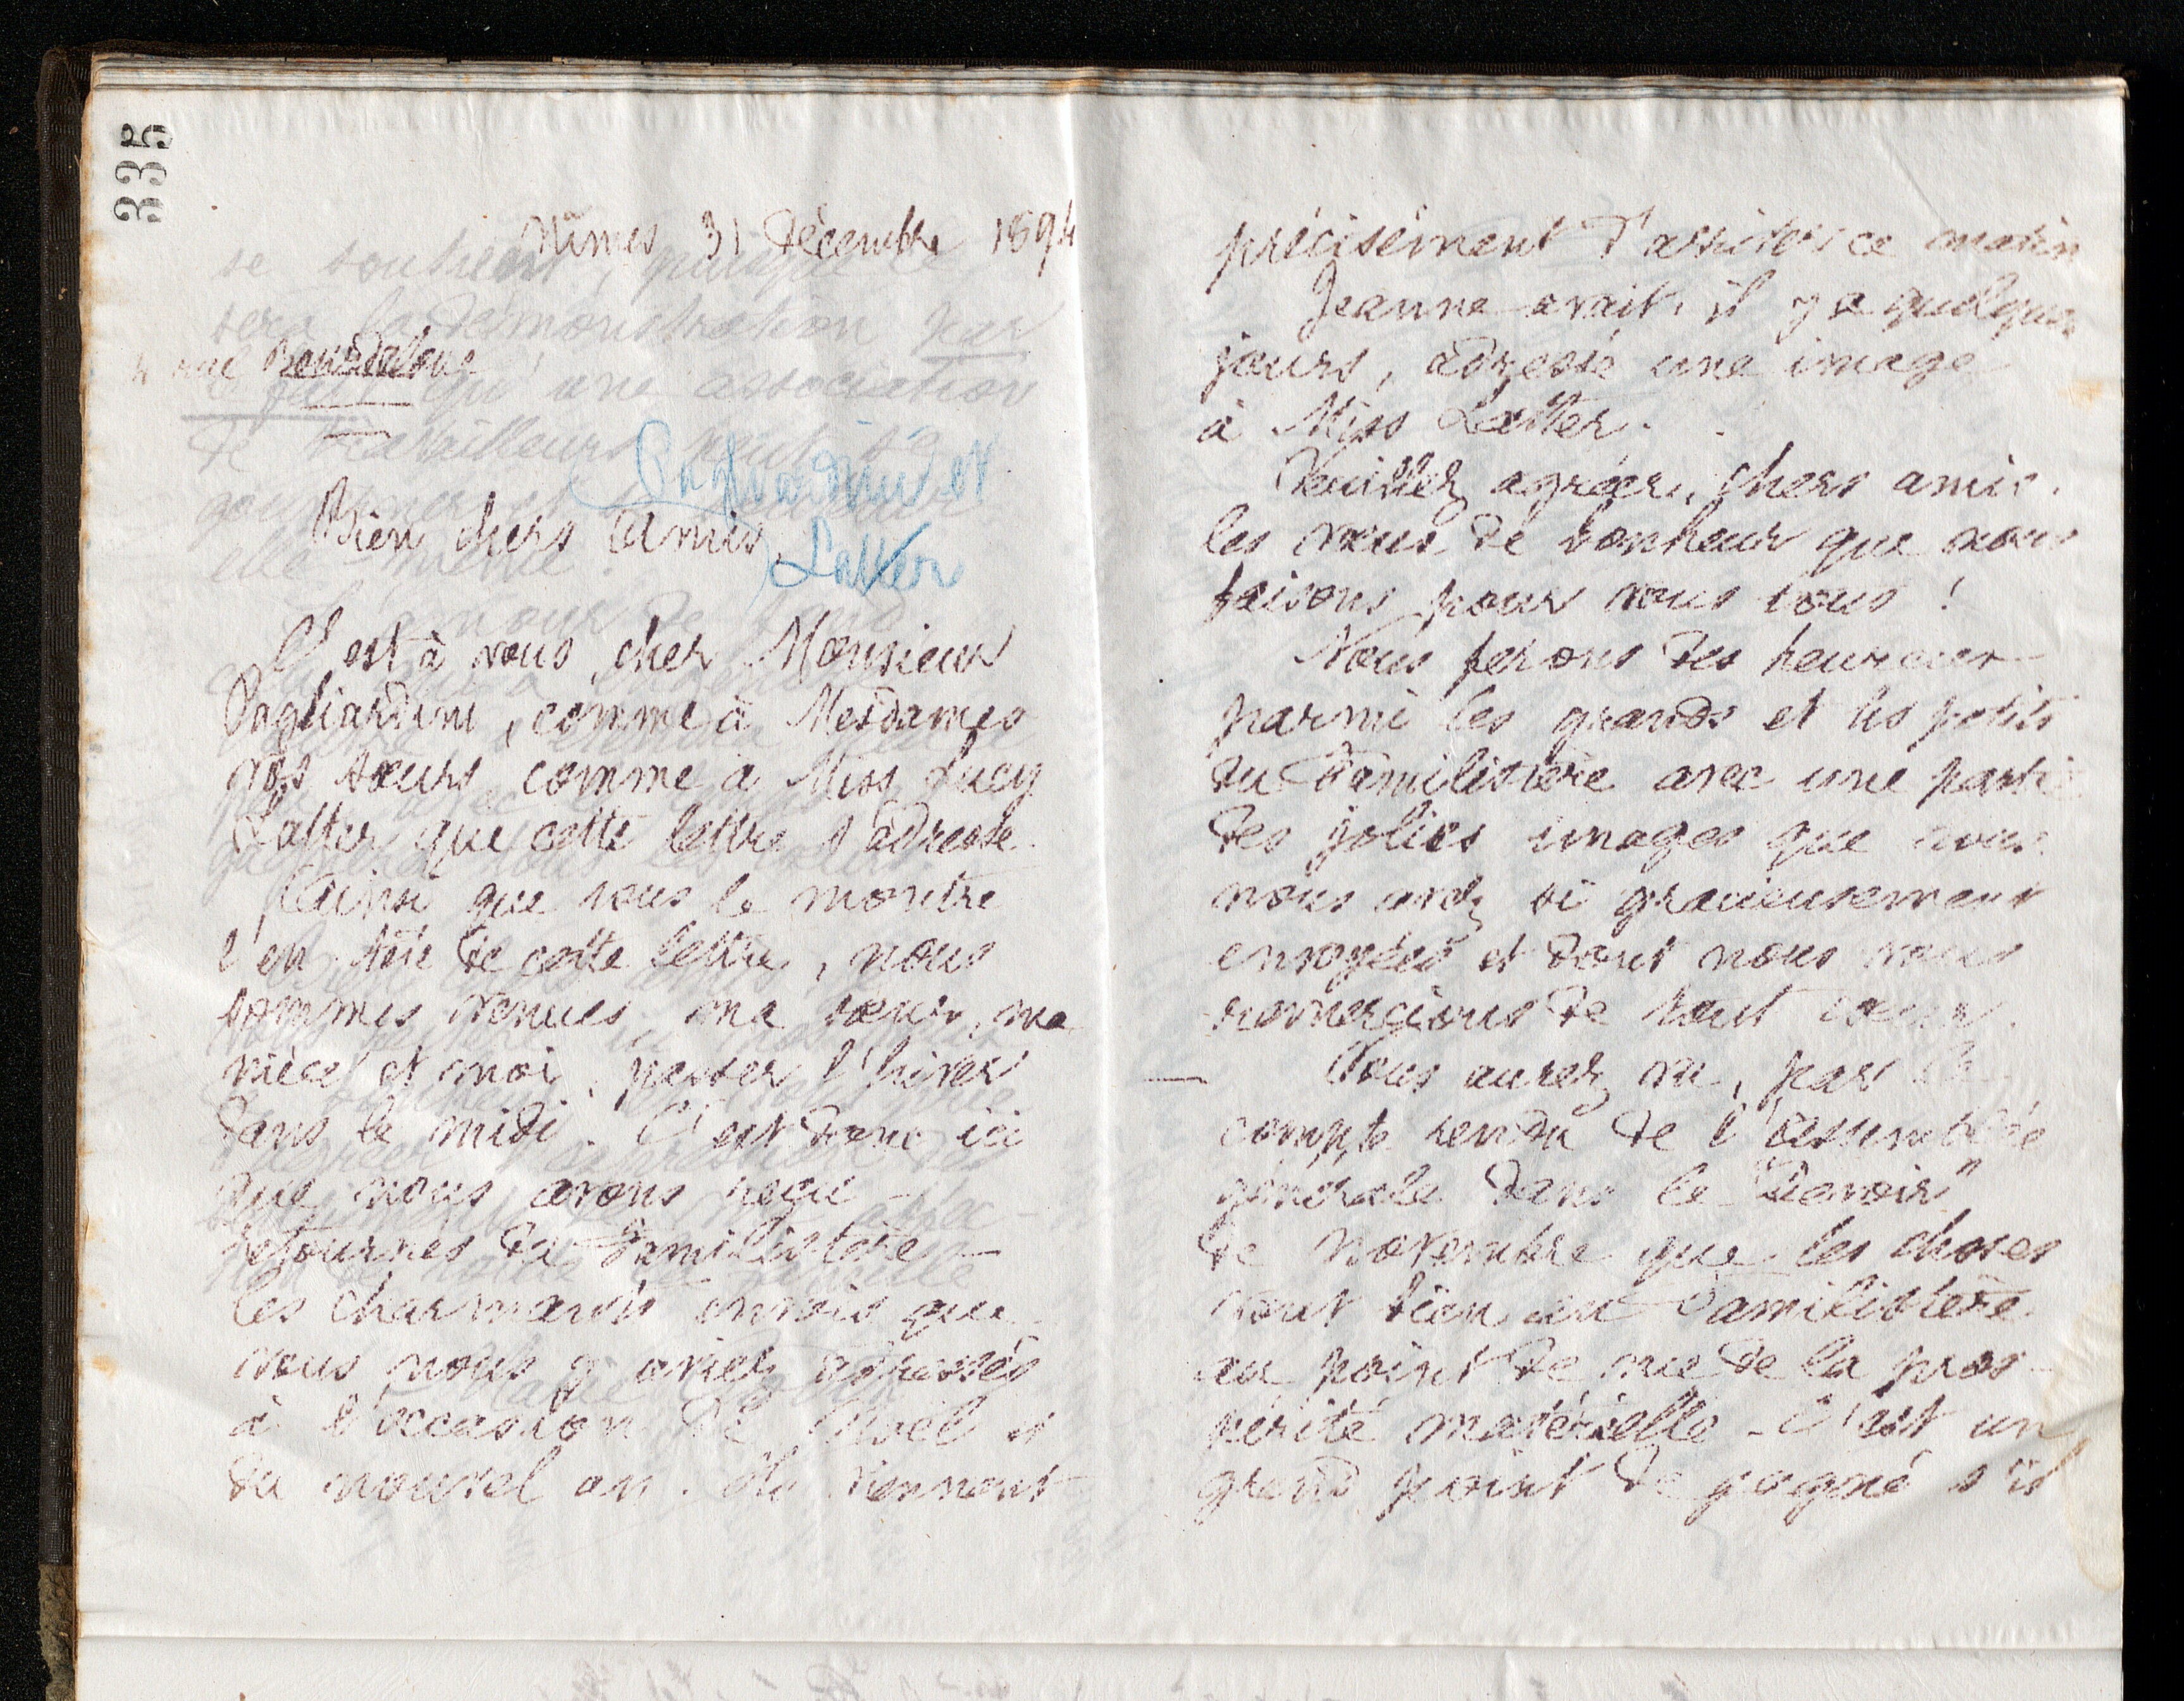 335
Nîmes 31 Décembre 1894
4 rue Bourdaloue
Pagliardini et
Latter
Bien chers Amis,
C'est à vous, cher Monsieur
Pagliardini, comme à Mesdames
vos sœurs, comme à Miss Lucy
Latter que cette lettre s'adresse.
Ainsi que vous le montre
l'en-tête de cette lettre, nous
sommes venues ma sœur, ma
nièce et moi, passer l'hiver
dans le midi. C'est donc ici
que nous avons reçu -
retournés du Familistère -
les charmants envois que
vous nous y aviez adressés
à l'occasion de Noël et
du nouvel an. Ils viennent
précisément d'arriver ce matin
Jeanne avait, il y a quelques
jours, adressé une image
à Miss Latter.
Veuillez agréer, chers amis,
les vœux de bonheur que nous
faisons pour vous tous !
Nous ferons des heureux
parmi les grands et les petits
du Familistère avec une partie
des jolies images que vous
nous avez si gracieusement
envoyées et dont nous vous
remercions de tout cœur.
Vous aurez vu, par le
compte rendu de l'assemblée
générale dans le "Devoir"
de novembre que les choses
vont bien au Familistère
au point de vue de la pros-
périté matérielle - C'est un
grand point de gagné s'il
se soutient, puisque ce
sera la démonstration par
le fait qu'une association
de travailleurs peut se
elle-même.